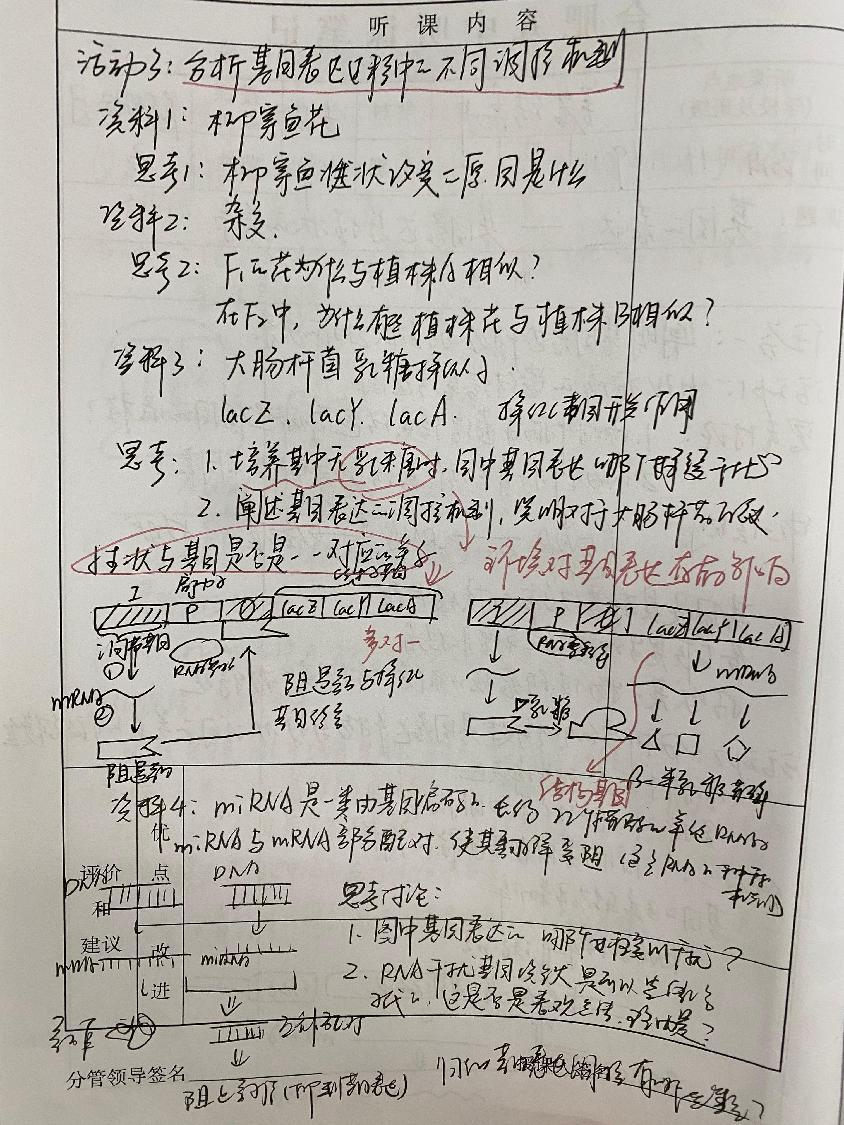 听课内容
活动3：分析基因表达过程中的不同调控机制
资料1：柳穿鱼花
思考1：柳穿鱼性状改变的原因是什么
资料2：杂交.
思考2：F₁的花为什么与植株A相似？
在F₂中，为什么有些植株花与植株B相似？
资料3：大肠杆菌乳糖操纵子.
lacZ、lacY、lacA.
思考：1. 培养基中无乳糖时，图中基因表达哪个
2. 阐述基因表达的调控机制，说明对于大肠杆菌的意义.
性状与基因是否是一一对应的关系
环境对基因表达存在影响
I 启动子 结构基因
P O lacZ lacY lacA
I P lacZ lacY lacA
调节基因
① RNA聚合酶
多对一
mRNA
②
阻遏蛋白与操纵
基因结合
RNA聚合酶
mRNA
乳糖
阻遏蛋白
结构基因
β-半乳糖苷酶
资料4：miRNA是一类由基因编码的.长约22个核苷酸的单链RNA分子
miRNA与mRNA部分配对.使其翻译受阻
优
评价 点
和
DNA DNA
思考讨论：
1. 图中基因表达的哪个过程受到干扰？
建议 改
mRNA miRNA
进
2. RNA干扰基因
这是否是表观遗传.理由是？
互补配对
分管领导签名
阻止翻译（抑制基因表达）